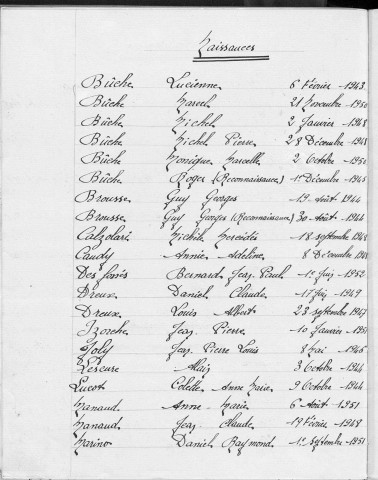 Naissances
Bûche Lucienne 6 Février 1943
Bûche Marcel 21 Novembre 1950
Bûche Michel 2 Janvier 1948
Bûche Michel Pierre 28 Décembre 1948
Bûche Monique Marcelle 2 Octobre 1951
Bûche Roger (Reconnaissance) 1er Décembre 1945
Brousse Guy Georges 19 Août 1944
Brousse Guy Georges (Reconnaissance) 30 Août 1944
Calzolari Michèle Mercédès 18 septembre 1948
Caudy Annie Adeline 8 Décembre 1948
Des fossés Bernard Jean Paul 1er Juin 1952
Dreux Daniel Claude 17 Juin 1949
Dreux Louis Albert 23 septembre 1947
Izorche Jean Pierre 10 Janvier 1951
Joly Jean Pierre Louis 8 Mai 1946
Leseure Alain 3 Octobre 1944
Lucot Colette Anne Marie 9 Octobre 1944
Manaud Anne Marie 6 Août 1951
Manaud Jean Claude 19 Février 1948
Marino Daniel Raymond 1er Septembre 1951